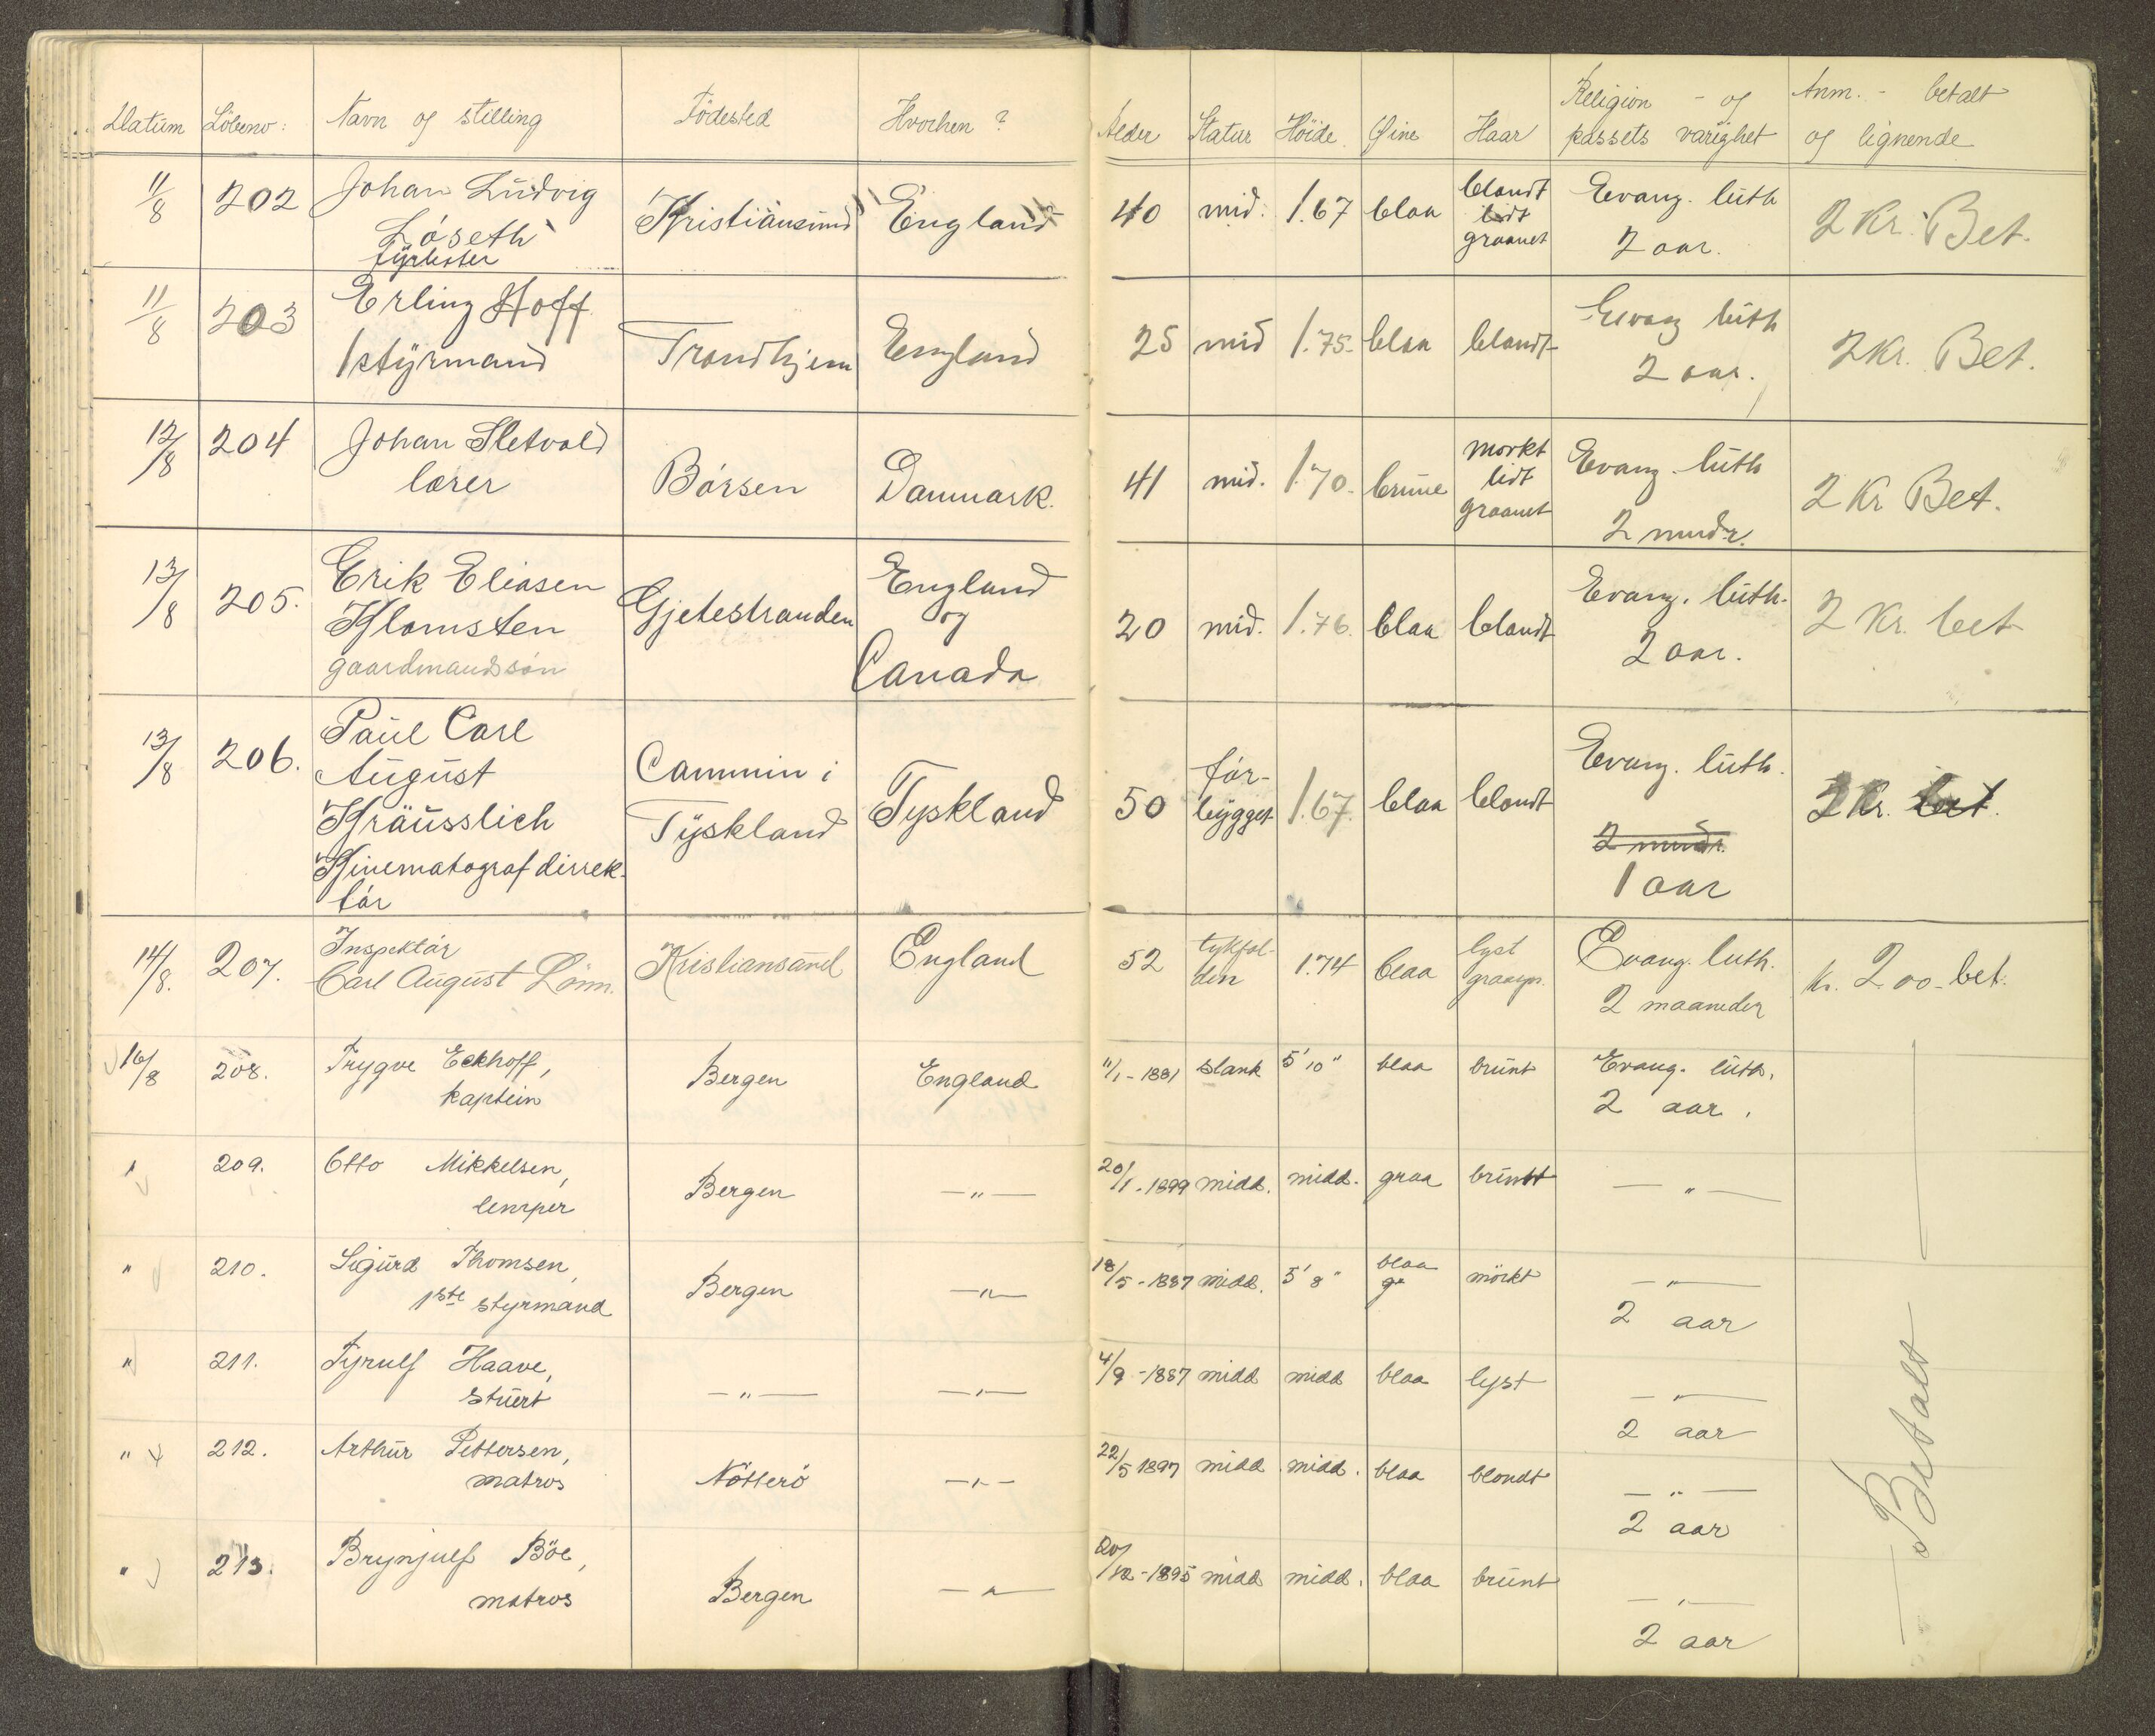 Datum Löbeno: Navn og stilling Födested Hvorhen? Alder Statur Höide Øine Haar Religion - og passets varighet Anm. - betalt og lignende
11/8 202 Johan Ludvig Kristiansund England 40 mid. 1.67 blaa blondt Evang. luth 2 Kr. Bet.
Löseth lidt 2 aar.
fyrböter graanet
11/8 203 Erling Hoff Trondhjem England 25 mid 1.75. blaa blondt Evang luth 2 Kr. Bet.
1 styrmand 2 aar.
12/8 204 Johan Sletvold Börsen Danmark. 41 mid. 1.70. brune morkt Evang. luth 2 Kr Bet.
lærer lidt 2 mndr.
graanet
13/8 205. Erik Eliasen Gjetestranden England 20 mid. 1.76. blaa blondt Evang. luth. 2 Kr. bet
Klomsten og 2 aar.
gaardmandssön Canada
13/8 206. Paul Carl Cammin i Tyskland 50 för- 1.67. blaa blondt Evang. luth. 2 Kr. bet.
August Tyskland bygget 2 mndr.
Kräusslich 1 aar
Kinematograf dirrek-
tör
14/8. 207. Inspektör Kristiansand England 52 tykfal- 1.74 blaa lyst Evang. luth. Kr. 2.00- bet.
Carl August Lönn. den graaspr. 2 maaneder
16/8 208. Trygve Eckhoff, Bergen England 11/1-1881 slank 5'10" blaa brunt Evang. luth.
kaptein 2 aar.
" 209. Otto Mikkelsen, Bergen —"— 20/1-1899 midd. midd. graa brunt —"—
lemper
" 210. Sigurd Thomsen, Bergen —"— 18/5-1887 midd. 5'8" blaa mörkt —"—
1ste styrmand gr 2 aar
" 211. Fyrulf Haave, —"— —"— 4/9-1887 midd midd blaa lyst —"—
stuert 2 aar
" 212. Arthur Pettersen, Nötterö —"— 22/5 1897 midd midd. blaa blondt —"—
matros 2 aar
" 213. Brynjulf Böe, Bergen —"— 20/12-1895 midd midd. blaa brunt —"—
matros 2 aar
Betalt